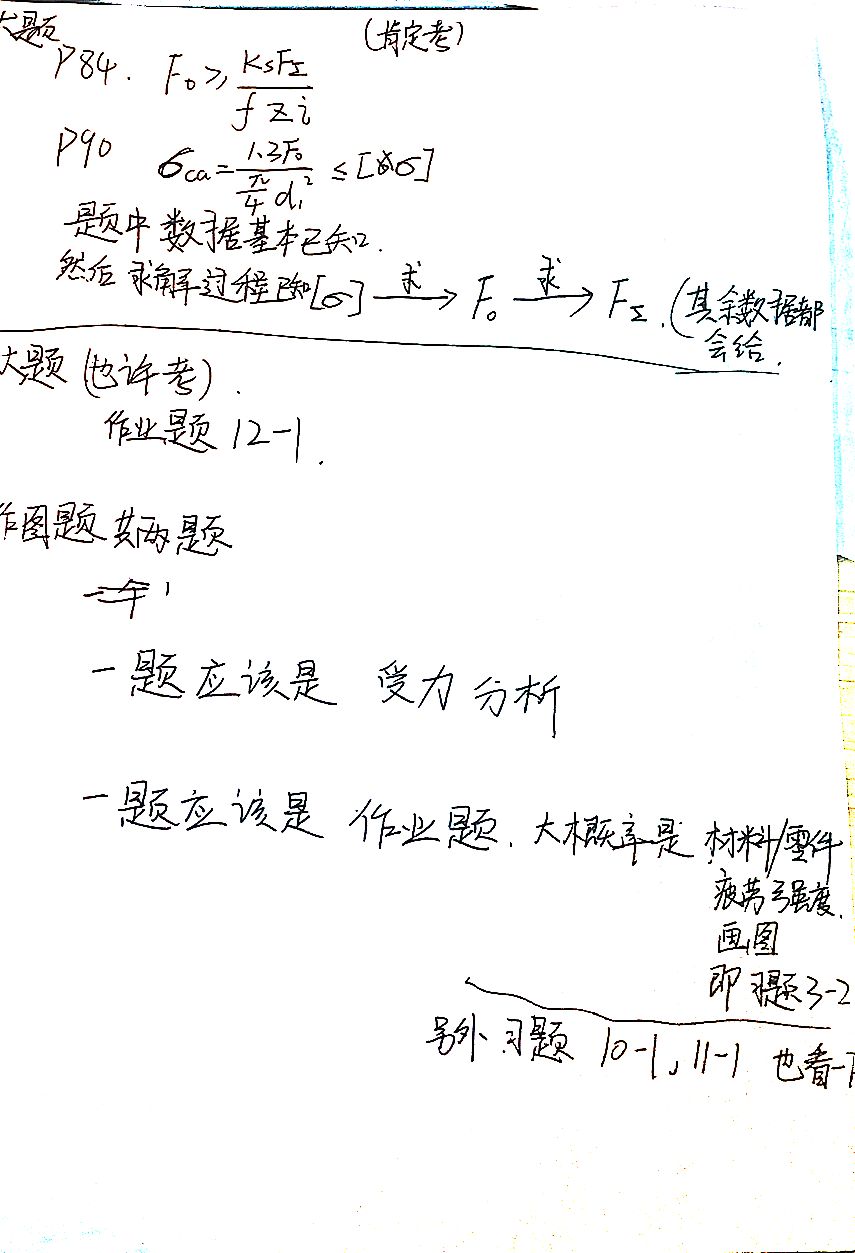 大题 (肯定考)
P84. F₀≥ KsFΣ / f z i
P90 σca = 1.3F₀ / (π/4 d₁²) ≤ [σ]
题中数据基本已知.
然后求解过程已知[σ] 求→ F₀ 求→ FΣ. (其余数据都
会给.
大题 (也许考).
作业题 12-1.
作图题 共两题
一题应该是 受力分析
一题应该是 作业题. 大概率是 材料/零件
疲劳强度.
画图
即习题3-2
另外 习题 10-1, 11-1 也看一下